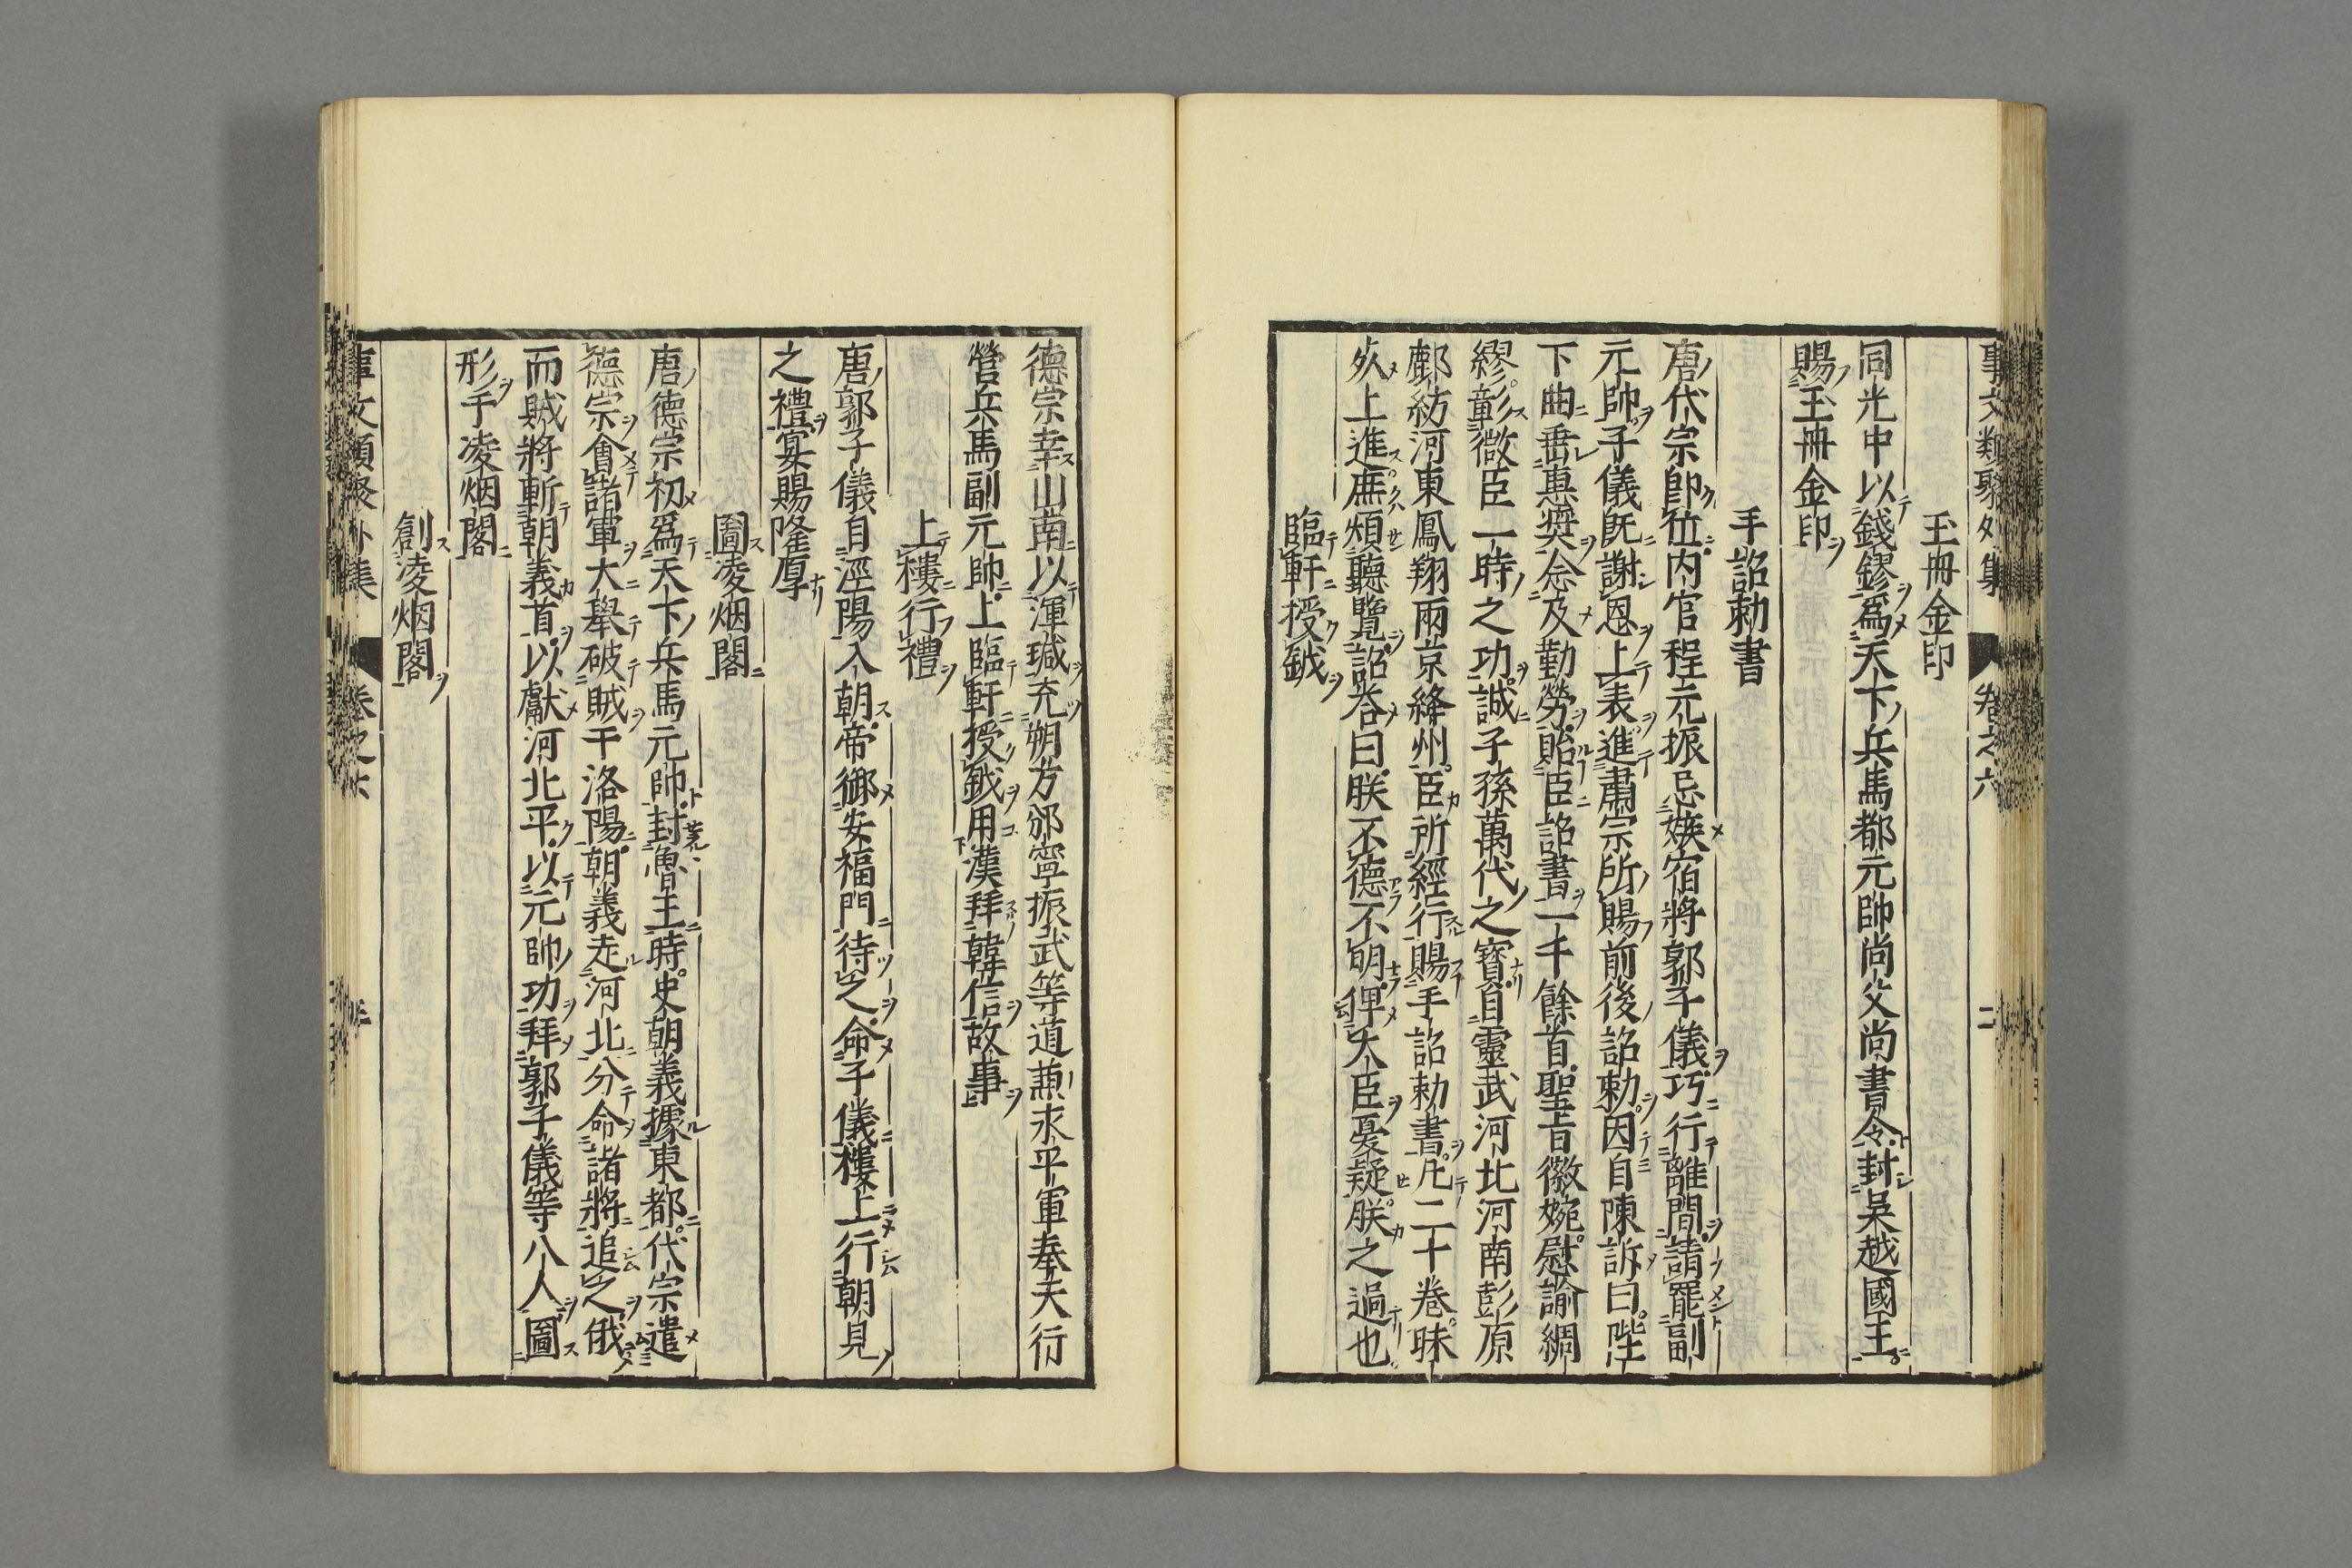 事文類聚外集 卷之六 二
玉冊金印
同光中以錢鏐爲天下兵馬都元帥尚父尚書令封吳越國王
賜玉冊金印
手詔勅書
唐代宗卽位内官程元振忌嫉宿將郭子儀巧行離間請罷副
元帥子儀旣謝恩上表進肅宗所賜前後詔勅因自陳訴曰陛
下曲垂惠奬念及勤勞貽臣詔書一千餘首聖旨徽婉慰諭綢
繆彰微臣一時之功誠子孫萬代之寳自靈武河北河南彭原
鄜紡河東鳳翔兩京絳州臣所經行賜手詔勅書凢二十卷昧
死上進庶煩聽覽詔答曰朕不德不明俾大臣憂疑朕之過也
臨軒授鉞
德宗幸山南以渾瑊充朔方邠寧振武等道兼永平軍奉天行
營兵馬副元帥上臨軒授鉞用漢拜韓信故事
上樓行禮
唐郭子儀自涇陽入朝帝御安福門待之命子儀樓上行朝見
之禮宴賜隆厚
圖凌烟閣
唐德宗初爲天下兵馬元帥封魯王時史朝義據東都代宗遣
德宗會諸軍大舉破賊于洛陽朝義走河北分命諸將追之俄
而賊將斬朝義首以獻河北平以元帥功拜郭子儀等八人圖
形于凌烟閣
創凌烟閣
事文類聚外集 卷之六